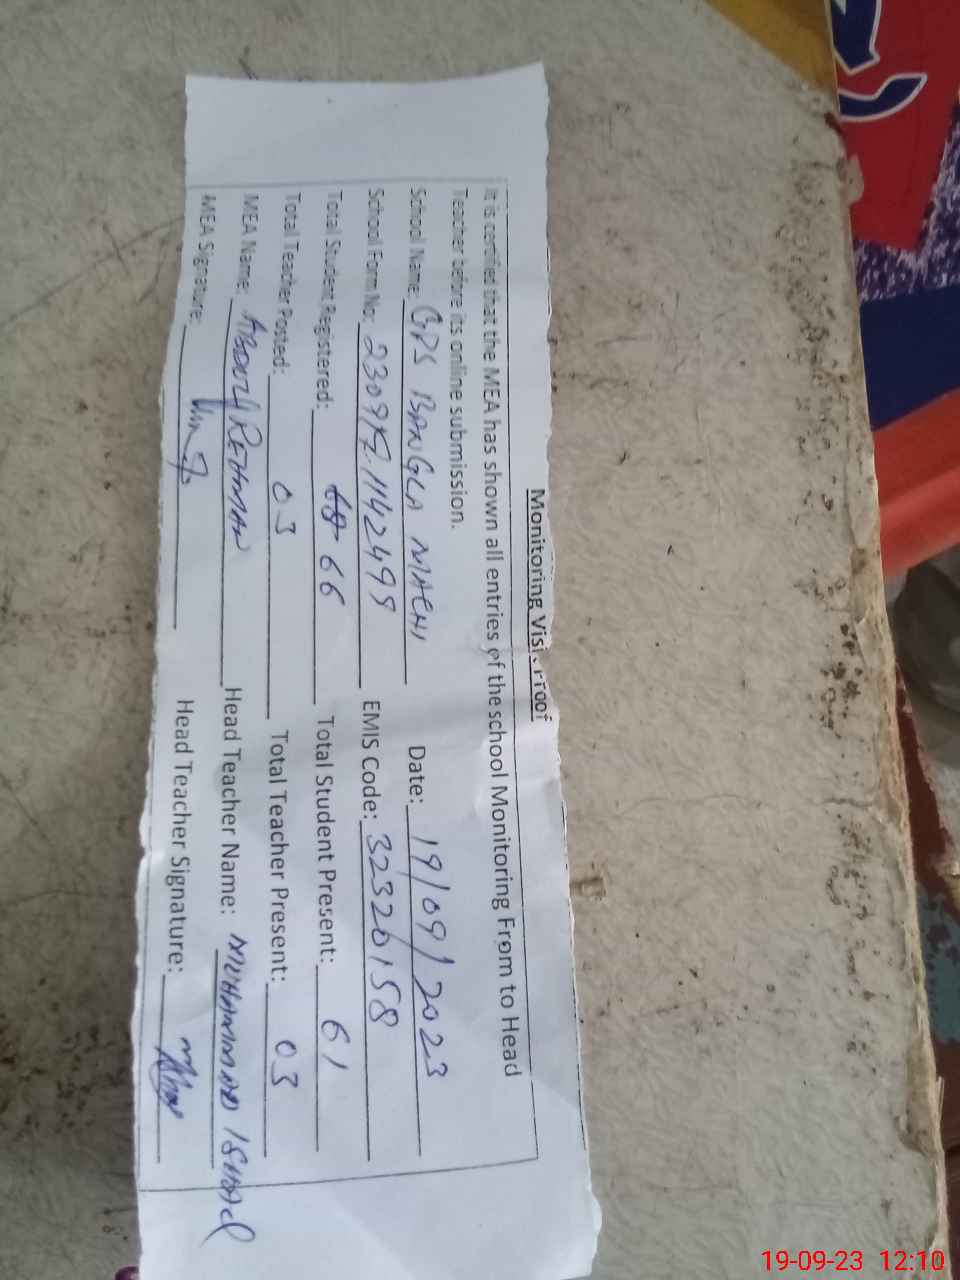 Monitoring Visit Proof
It is certified that the MEA has shown all entries of the school Monitoring From to Head
Teacher before its online submission.
School Name: GPS BANGLA MACHI Date: 19/09/2023
School Form No: EMIS Code: 32320158
Total Student Registered: 66 Total Student Present: 61
Total Teacher Posted: 03 Total Teacher Present: 03
MEA Name: ABDUL REHMAN Head Teacher Name: MUHAMMAD
MEA Signature: Head Teacher Signature:
19-09-23 12:10